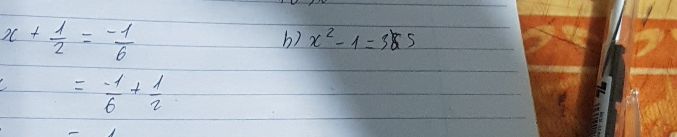 x + 1/2 = -1/6
b) x² - 1 = 3 5
= -1/6 + 1/2